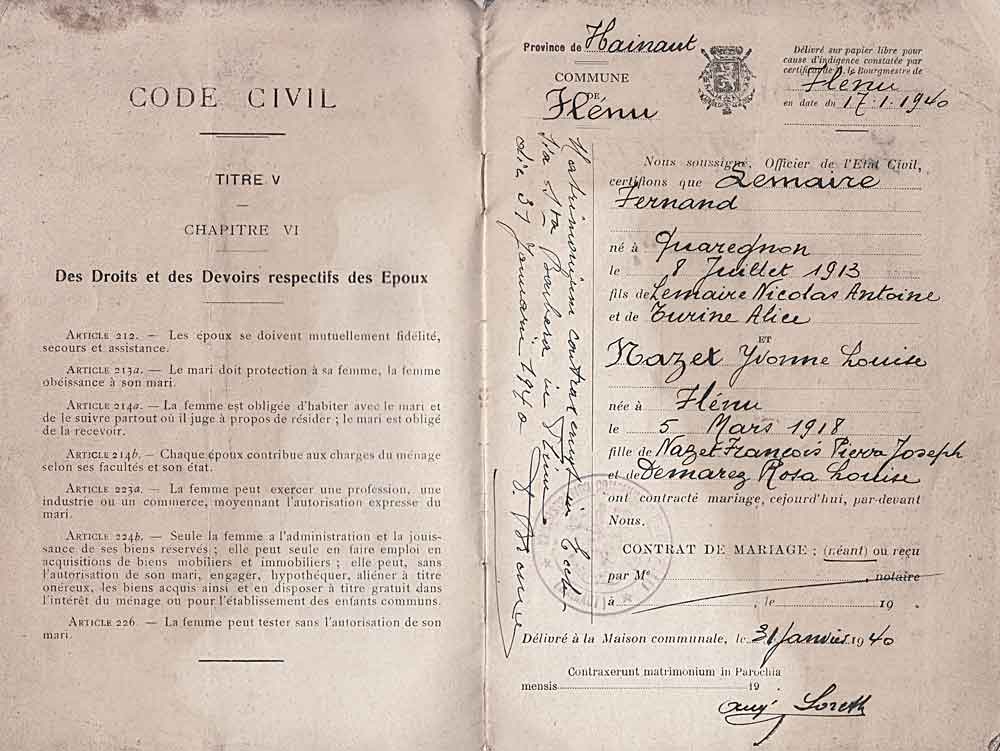 CODE CIVIL
TITRE V
CHAPITRE VI
Des Droits et des Devoirs respectifs des Epoux
ARTICLE 212. — Les époux se doivent mutuellement fidélité,
secours et assistance.
ARTICLE 213a. — Le mari doit protection à sa femme, la femme
obéissance à son mari.
ARTICLE 214a. — La femme est obligée d'habiter avec le mari et
de le suivre partout où il juge à propos de résider ; le mari est obligé
de la recevoir.
ARTICLE 214b. — Chaque époux contribue aux charges du ménage
selon ses facultés et son état.
ARTICLE 223a. — La femme peut exercer une profession, une
industrie ou un commerce, moyennant l'autorisation expresse du
mari.
ARTICLE 224b. — Seule la femme a l'administration et la jouis-
sance de ses biens reservés ; elle peut seule en faire emploi en
acquisitions de biens mobiliers et immobiliers ; elle peut, sans
l'autorisation de son mari, engager, hypothéquer, aliéner à titre
onéreux, les biens acquis ainsi et en disposer à titre gratuit dans
l'intérêt du ménage ou pour l'établissement des enfants communs.
ARTICLE 226. — La femme peut tester sans l'autorisation de son
mari.
Province de Hainaut
COMMUNE
DE
Flénu
Délivré sur papier libre pour
cause d'indigence constatée par
certificat de le Bourgmestre de
Flénu
en date du 17.1.1940
Matrimonium contraxerunt in Eccle
sia Sta Barbara in Flénu
die 31 Januarii 1940
Nous soussigné, Officier de l'Etat Civil,
certifions que Lemaire
Fernand
né à Quaregnon
le 8 Juillet 1913
fils de Lemaire Nicolas Antoine
et de Turine Alice
ET
Nazet Yvonne Louise
née à Flénu
le 5 Mars 1918
fille de Nazet François Pierre Joseph
et de Demarez Rosa Louise
ont contracté mariage, cejourd'hui, par-devant
Nous.
CONTRAT DE MARIAGE : (néant) ou reçu
par Me , notaire
à , le 19
Délivré à la Maison communale, le 31 Janvier 1940
Contraxerunt matrimonium in Parochia
mensis 19 .